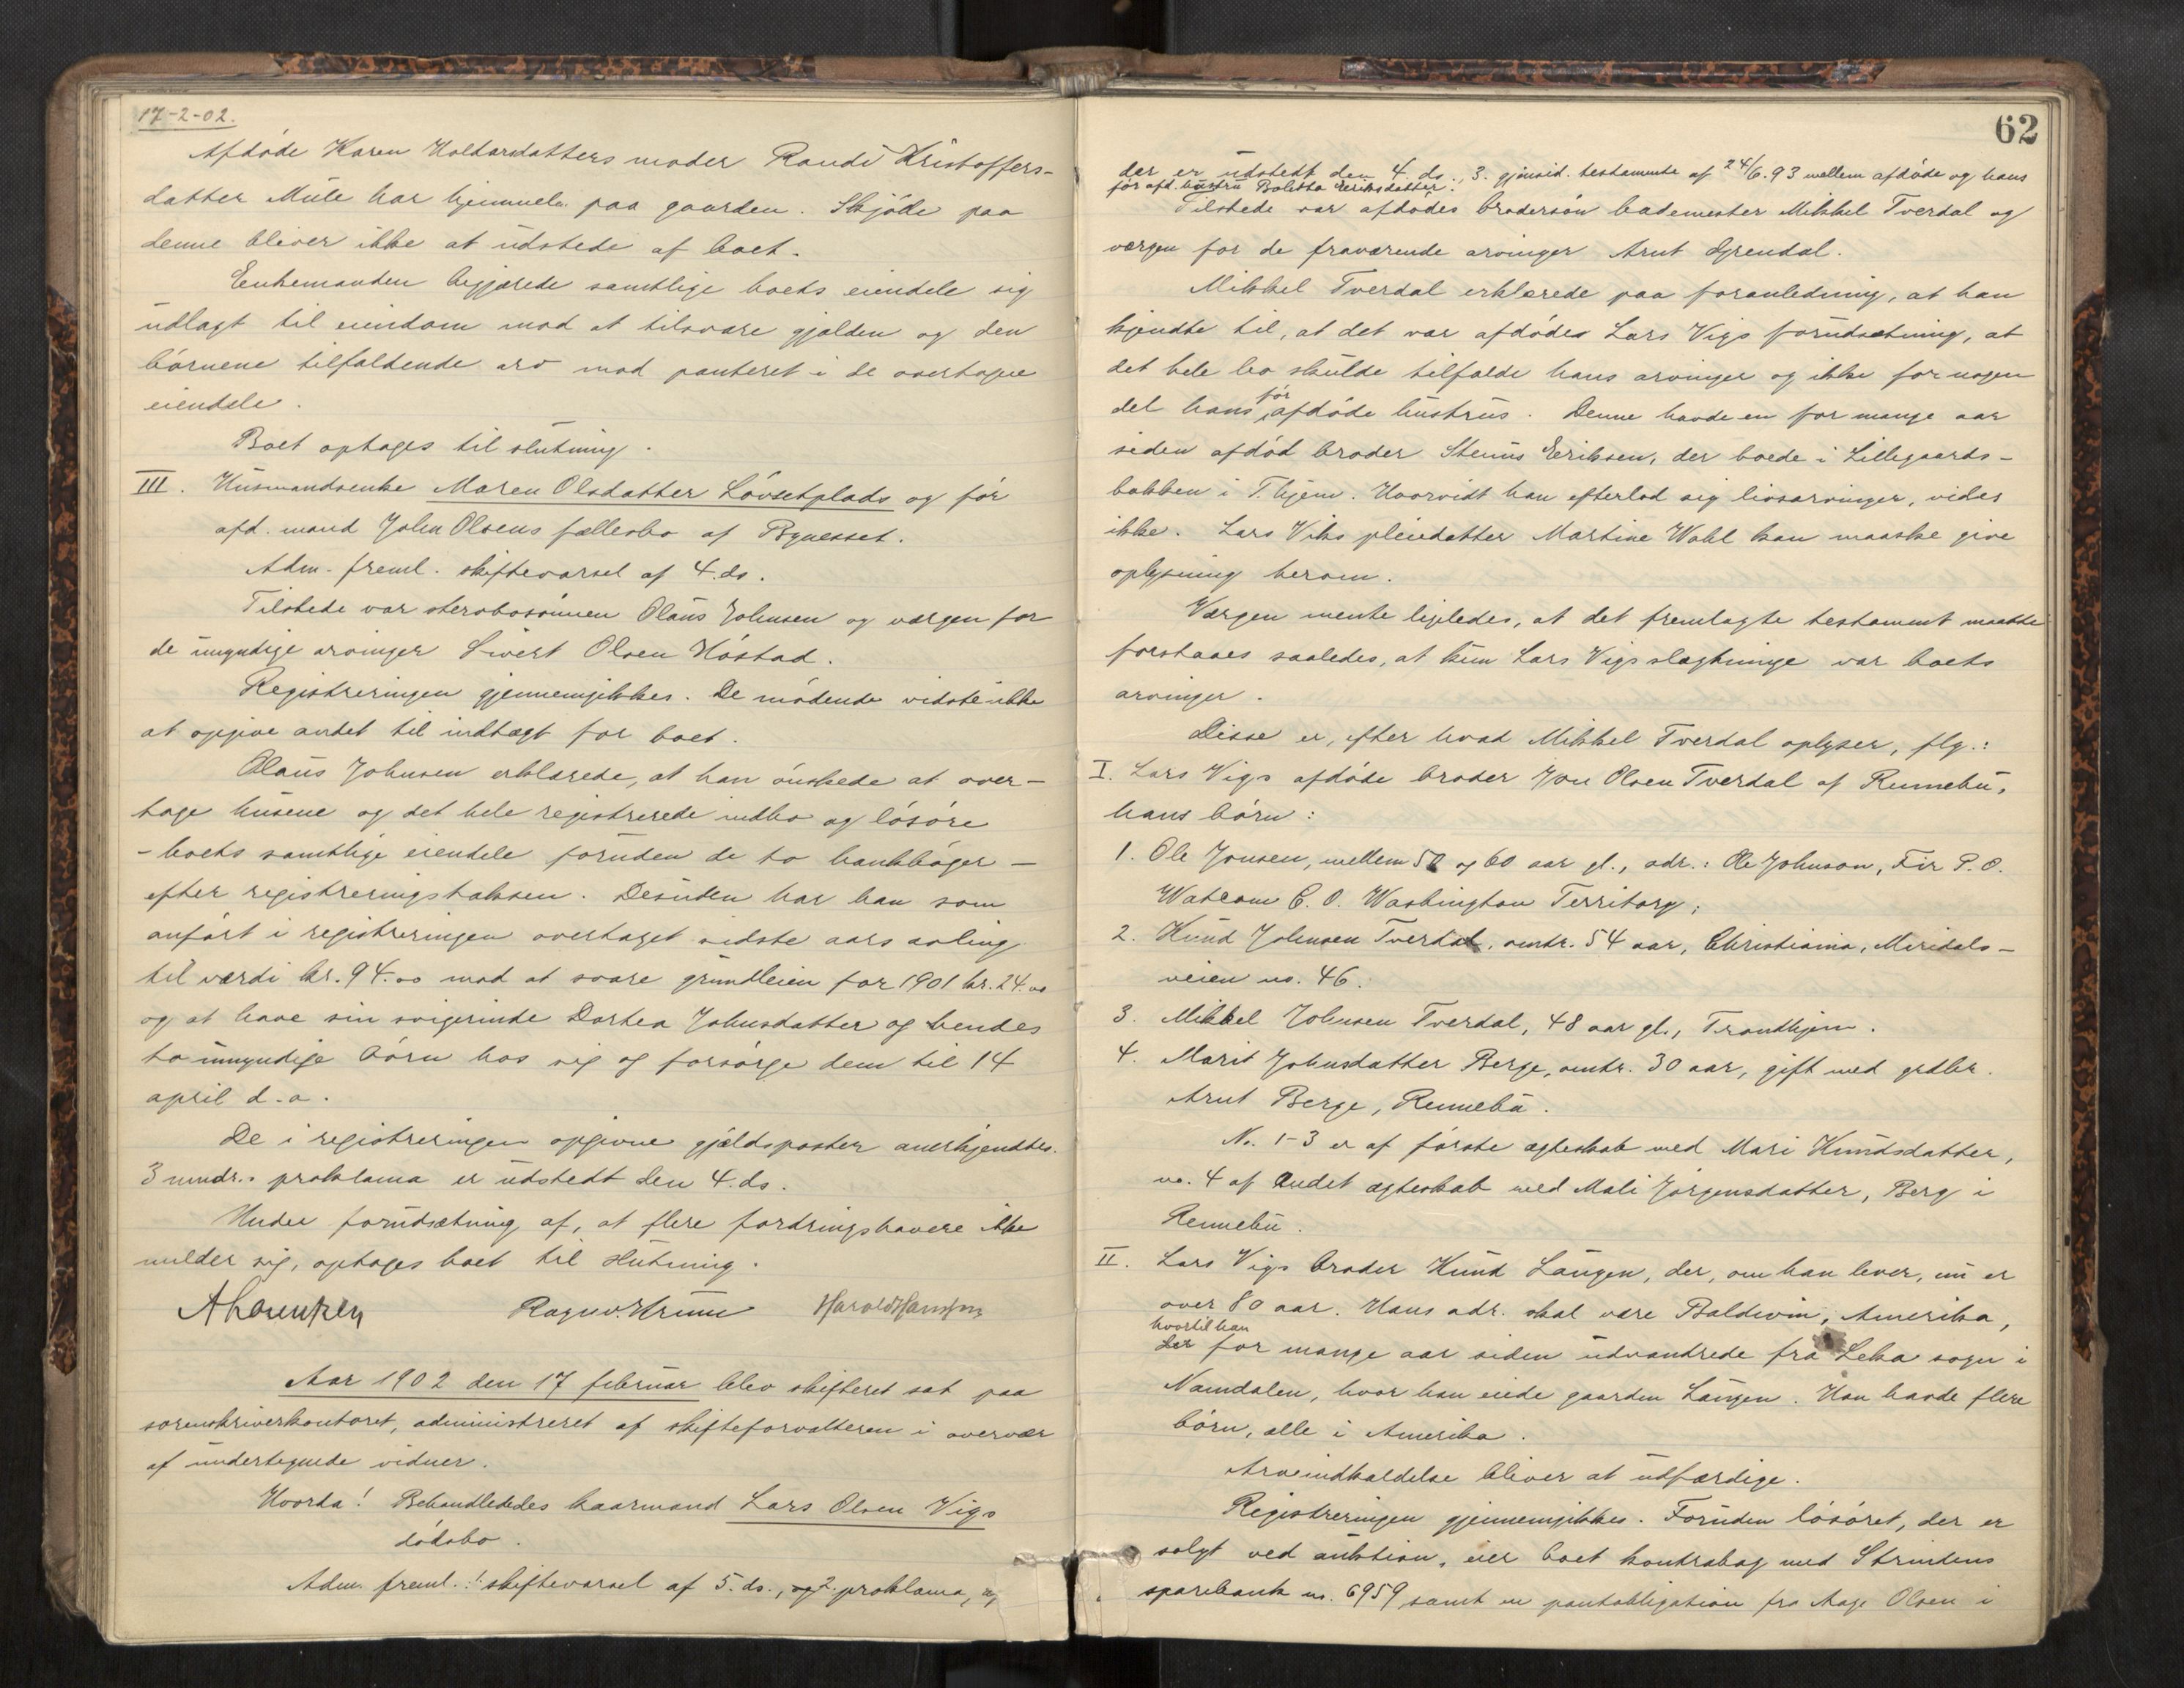 17-2-02.
Afdöde Karen Haldorsdatters moder Randi Kristoffers-
datter Mule har hjemmel paa gaarden. Skjöde paa
denne bliver ikke at udstede af boet.
Enkemanden begjærede samtlige boets eiendele sig
udlagt til eiendom mod at tilsvare gjælden og den
börnene tilfaldende arv mod panteret i de overtagne
eiendele.
Boet optages til slutning.
III. Husmandsenke Maren Olsdatter Lövsetplads og för
afd. mand John Olsens fællesbo af Bynesset.
Adm. freml. skiftevarsel af 4. ds.
Tilstede var stervbosönnen Olaus Johnsen og værgen for
de umyndige arvinger Sivert Olsen Höstad.
Registreringen gjennemgikkes. De mödende vidste ikke
at opgive andet til indtægt for boet.
Olaus Johnsen erklærede, at han önskede at over-
tage husene og det hele registrerede indbo og lösöre
- boets samtlige eiendele foruden de to bankböger -
efter registreringstaksten. Desuden har han som
anfört i registreringen overtaget sidste aars avling
til værdi kr. 94.00 mod at svare grundleien for 1901 kr. 24.00
og at have sin svigerinde Dortea Johnsdatter og hendes
to umyndige börn hos sig og forsörge dem til 14
april d. a.
De i registreringen opgivne gjældsposter anerkjendtes.
3 mndr.s proklama er udstedt den 4. ds.
Under forudsætning af, at flere fordringshavere ikke
melder sig, optages boet til slutning.
A Lorentzen Ragnv. Harald Hansen
Aar 1902 den 17 februar blev skifteret sat paa
sorenskriverkontoret, administreret af skifteforvalteren i overvær
af undertegnede vidner.
Hvorda! Behandledes kaarmand Lars Olsen Vigs
dödsbo.
Adm. freml. 1. skiftevarsel af 5. ds., 2. proklama,
62
der er udstedt den 4. ds., 3. gjensid. testamente af 24/6.93 mellem afdöde og hans
för afd. hustru Boletta Eriksdatter.
Tilstede var afdödes brodersön bademester Mikkel Tverdal og
værgen for de fraværende arvinger Arnt Grendal.
Mikkel Tverdal erklærede paa foranledning, at han
kjendte til, at det var afdöde Lars Vigs forudsætning, at
det hele bo skulde tilfalde hans arvinger og ikke for nogen
del hans för afdöde hustrus. Denne havde en for mange aar
siden afdöd broder Stenus Eriksen, der boede i Lillegaards-
bakken i T.hjem. Hvorvidt han efterlod sig livsarvinger, vides
ikke. Lars Viks pleiedatter Martine Wahl kan maaske give
oplysning herom.
Værgen mente ligeledes, at det fremlagte testament maatte
forstaaes saaledes, at kun Lars Vigs slægtninge var boets
arvinger.
Disse er, efter hvad Mikkel Tverdal oplyser, flg.:
I. Lars Vigs afdöde broder Jon Olsen Tverdal af Rennebu,
hans börn:
1. Ole Jonsen, mellem 50 og 60 aar gl., adr.: Ole Johnson, Fir P. O.
Watcom C. O. Washington Territory;
2. Knud Johnsen Tverdal, omtr. 54 aar, Christiania, Maridals-
veien no. 46.
3. Mikkel Johnsen Tverdal, 48 aar gl., Trondhjem.
4. Marit Johnsdatter Berge, omtr. 30 aar, gift med grdbr.
Arnt Berge, Rennebu.
No. 1-3 er af förste ægteskab med Mari Knudsdatter,
no. 4 af andet ægteskab med Mali Jörgensdatter, Berg i
Rennebu.
II. Lars Vigs broder Knud Laugen, der, om han lever, nu er
over 80 aar. Hans adr. skal være Baldwin, Amerika,
hvortil han
der for mange aar siden udvandrede fra Leka sogn i
Namdalen, hvor han eiede gaarden Laugen. Han havde flere
börn, alle i Amerika.
Arveindkaldelse bliver at udfærdige.
Registreringen gjennemgikkes. Foruden lösöret, der er
solgt ved auktion, eier boet kontrabog med Strindens
sparebank no. 6959 samt en pantobligation fra Aage Olsen i